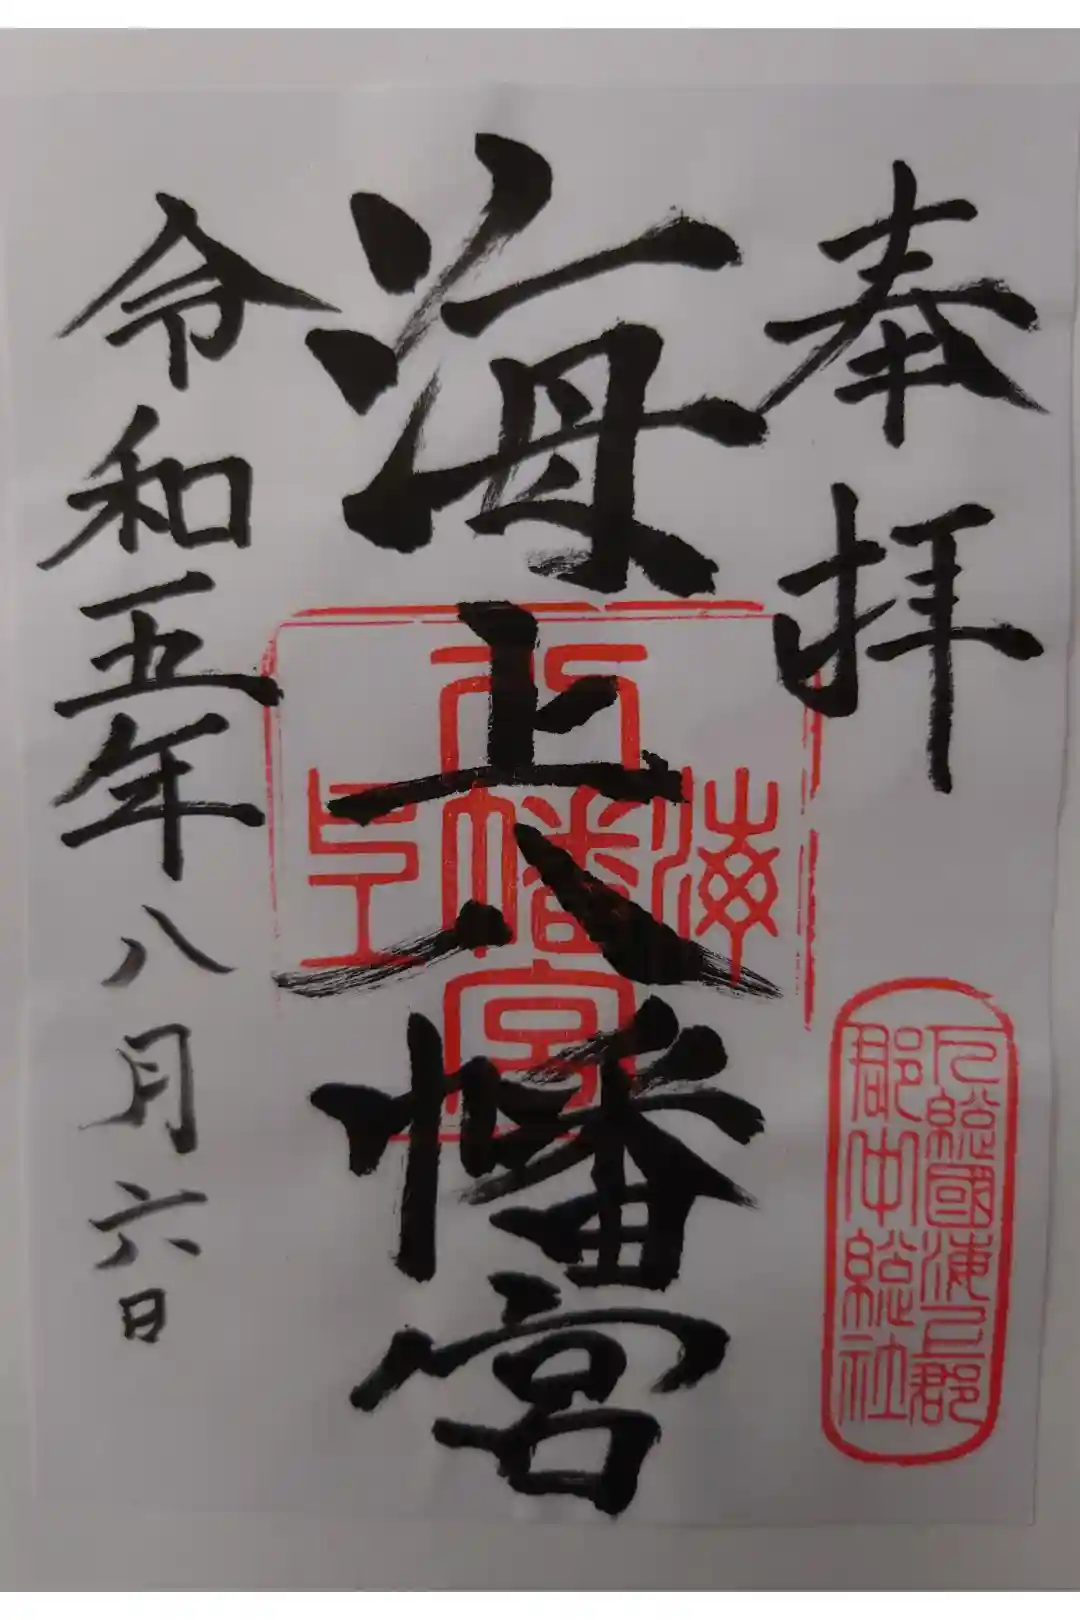 奉拝
下総國海上郡
郡中総社
海上八幡宮
海上八幡宮
令和五年八月六日